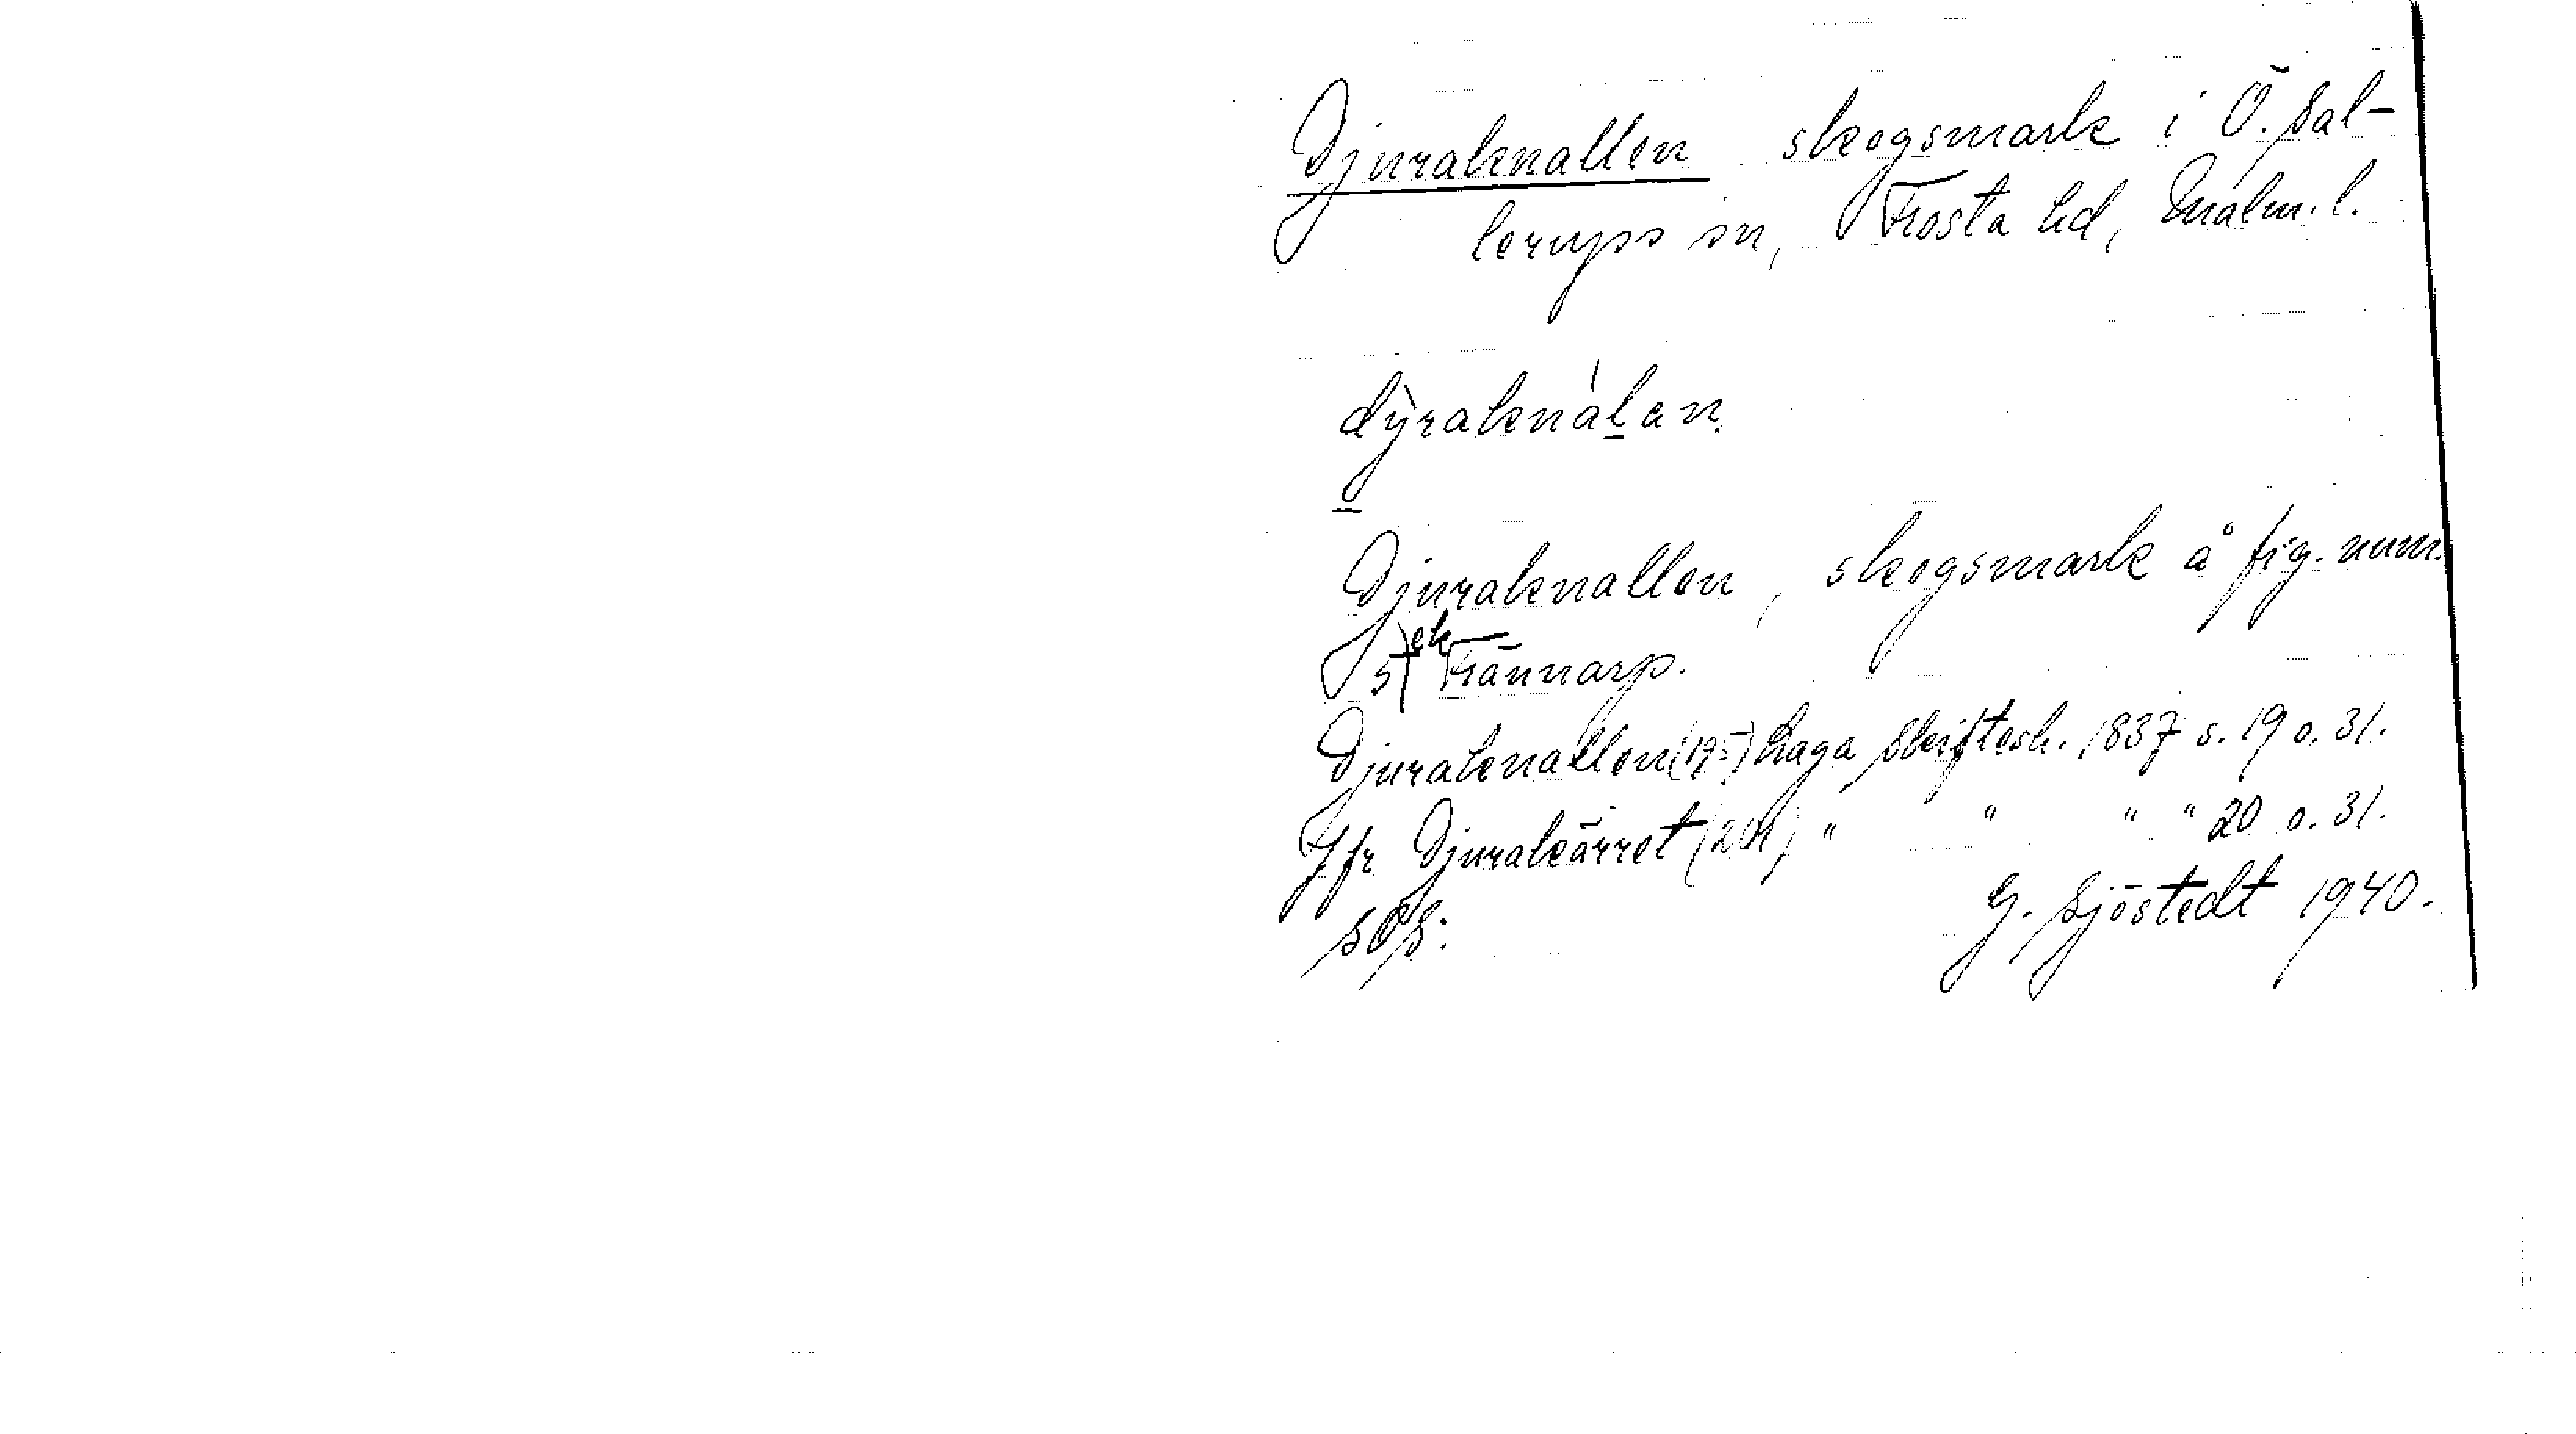 Djuraknallen skogsmark i Ö. Sal-
lerups sn, Frosta hd, Malm. l.
dỳraknàlan
Djuraknallen, skogsmark å fig. num.
5) ek Trännarp.
Djuraknallen (195) Laga Skiftesh. 1837 s. 19 o. 31.
Jfr Djurakärret (201) " " " " 20 o. 31.
G. Sjöstedt 1940.